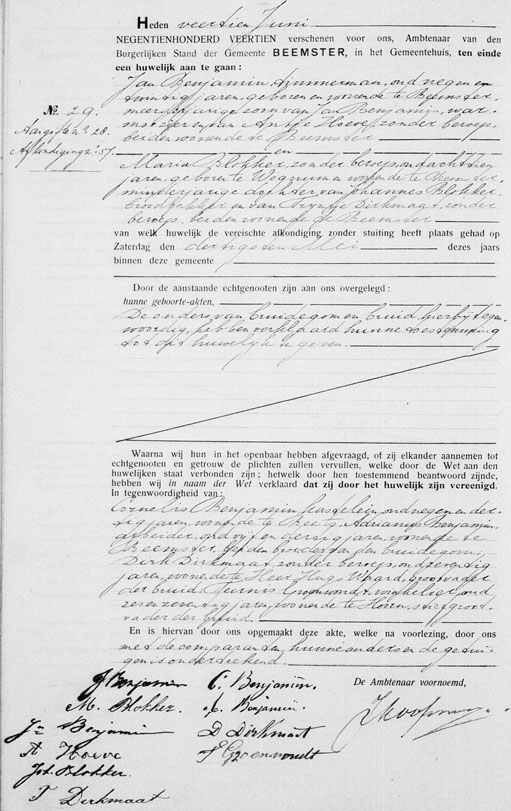 Heden veertien Juni
NEGENTIENHONDERD VEERTIEN verschenen voor ons, Ambtenaar van den
Burgerlijken Stand der Gemeente BEEMSTER, in het Gemeentehuis, ten einde
een huwelijk aan te gaan:
Jan Benjamin, oud negen en
twintig jaren, geboren en wonende te Beemster,
meerderjarige zoon van Jan Benjamin,
en van Antje Hoeve, zonder beroep,
beiden wonende te Beemster
No. 29.
Aangifte no. 28.
Afkondiging no. 37
en
Maria Blokker, zonder beroep, oud achttien
jaren, geboren te Wognum, wonende te Beemster,
minderjarige dochter van Johannes Blokker,
en van Trijntje Dirkmaat, zonder
beroep, beiden wonende te Beemster
van welk huwelijk de vereischte afkondiging, zonder stuiting heeft plaats gehad op
Zaterdag den dertigsten Mei dezes jaars
binnen deze gemeente
Door de aanstaande echtgenooten zijn aan ons overgelegd:
hunne geboorte-akten,
De ouders van bruidegom en bruid, hierbij tegen-
woordig, hebben verklaard hunne toestemming
tot dit huwelijk te geven.
Waarna wij hun in het openbaar hebben afgevraagd, of zij elkander aannemen tot
echtgenooten en getrouw de plichten zullen vervullen, welke door de Wet aan den
huwelijken staat verbonden zijn; hetwelk door hen toestemmend beantwoord zijnde,
hebben wij in naam der Wet verklaard dat zij door het huwelijk zijn vereenigd.
In tegenwoordigheid van:
Cornelis Benjamin, kastelein, oud negen en der-
tig jaren, wonende te Beets, Adrianus Benjamin,
arbeider, oud vijf en dertig jaren, wonende te
Beemster, beiden broeders van den bruidegom,
Dirk Dirkmaat, zonder beroep, oud zeventig
jaren, wonende te Heer Hugo Waard, grootvader
der bruid, Teunis Groenwoudt, winkelier, oud
zes en zeventig jaren, wonende te Hoorn, stiefgroot-
vader der bruid.
En is hiervan door ons opgemaakt deze akte, welke na voorlezing, door ons
met de comparanten, hunne ouders en de getui-
gen is onderteekend.
De Ambtenaar voornoemd,
J Benjamin C. Benjamin.
M. Blokker. A. Benjamin.
Jn Benjamin D Dirkmaat
A Hoeve T Groenwoudt
Joh. Blokker.
T Dirkmaat